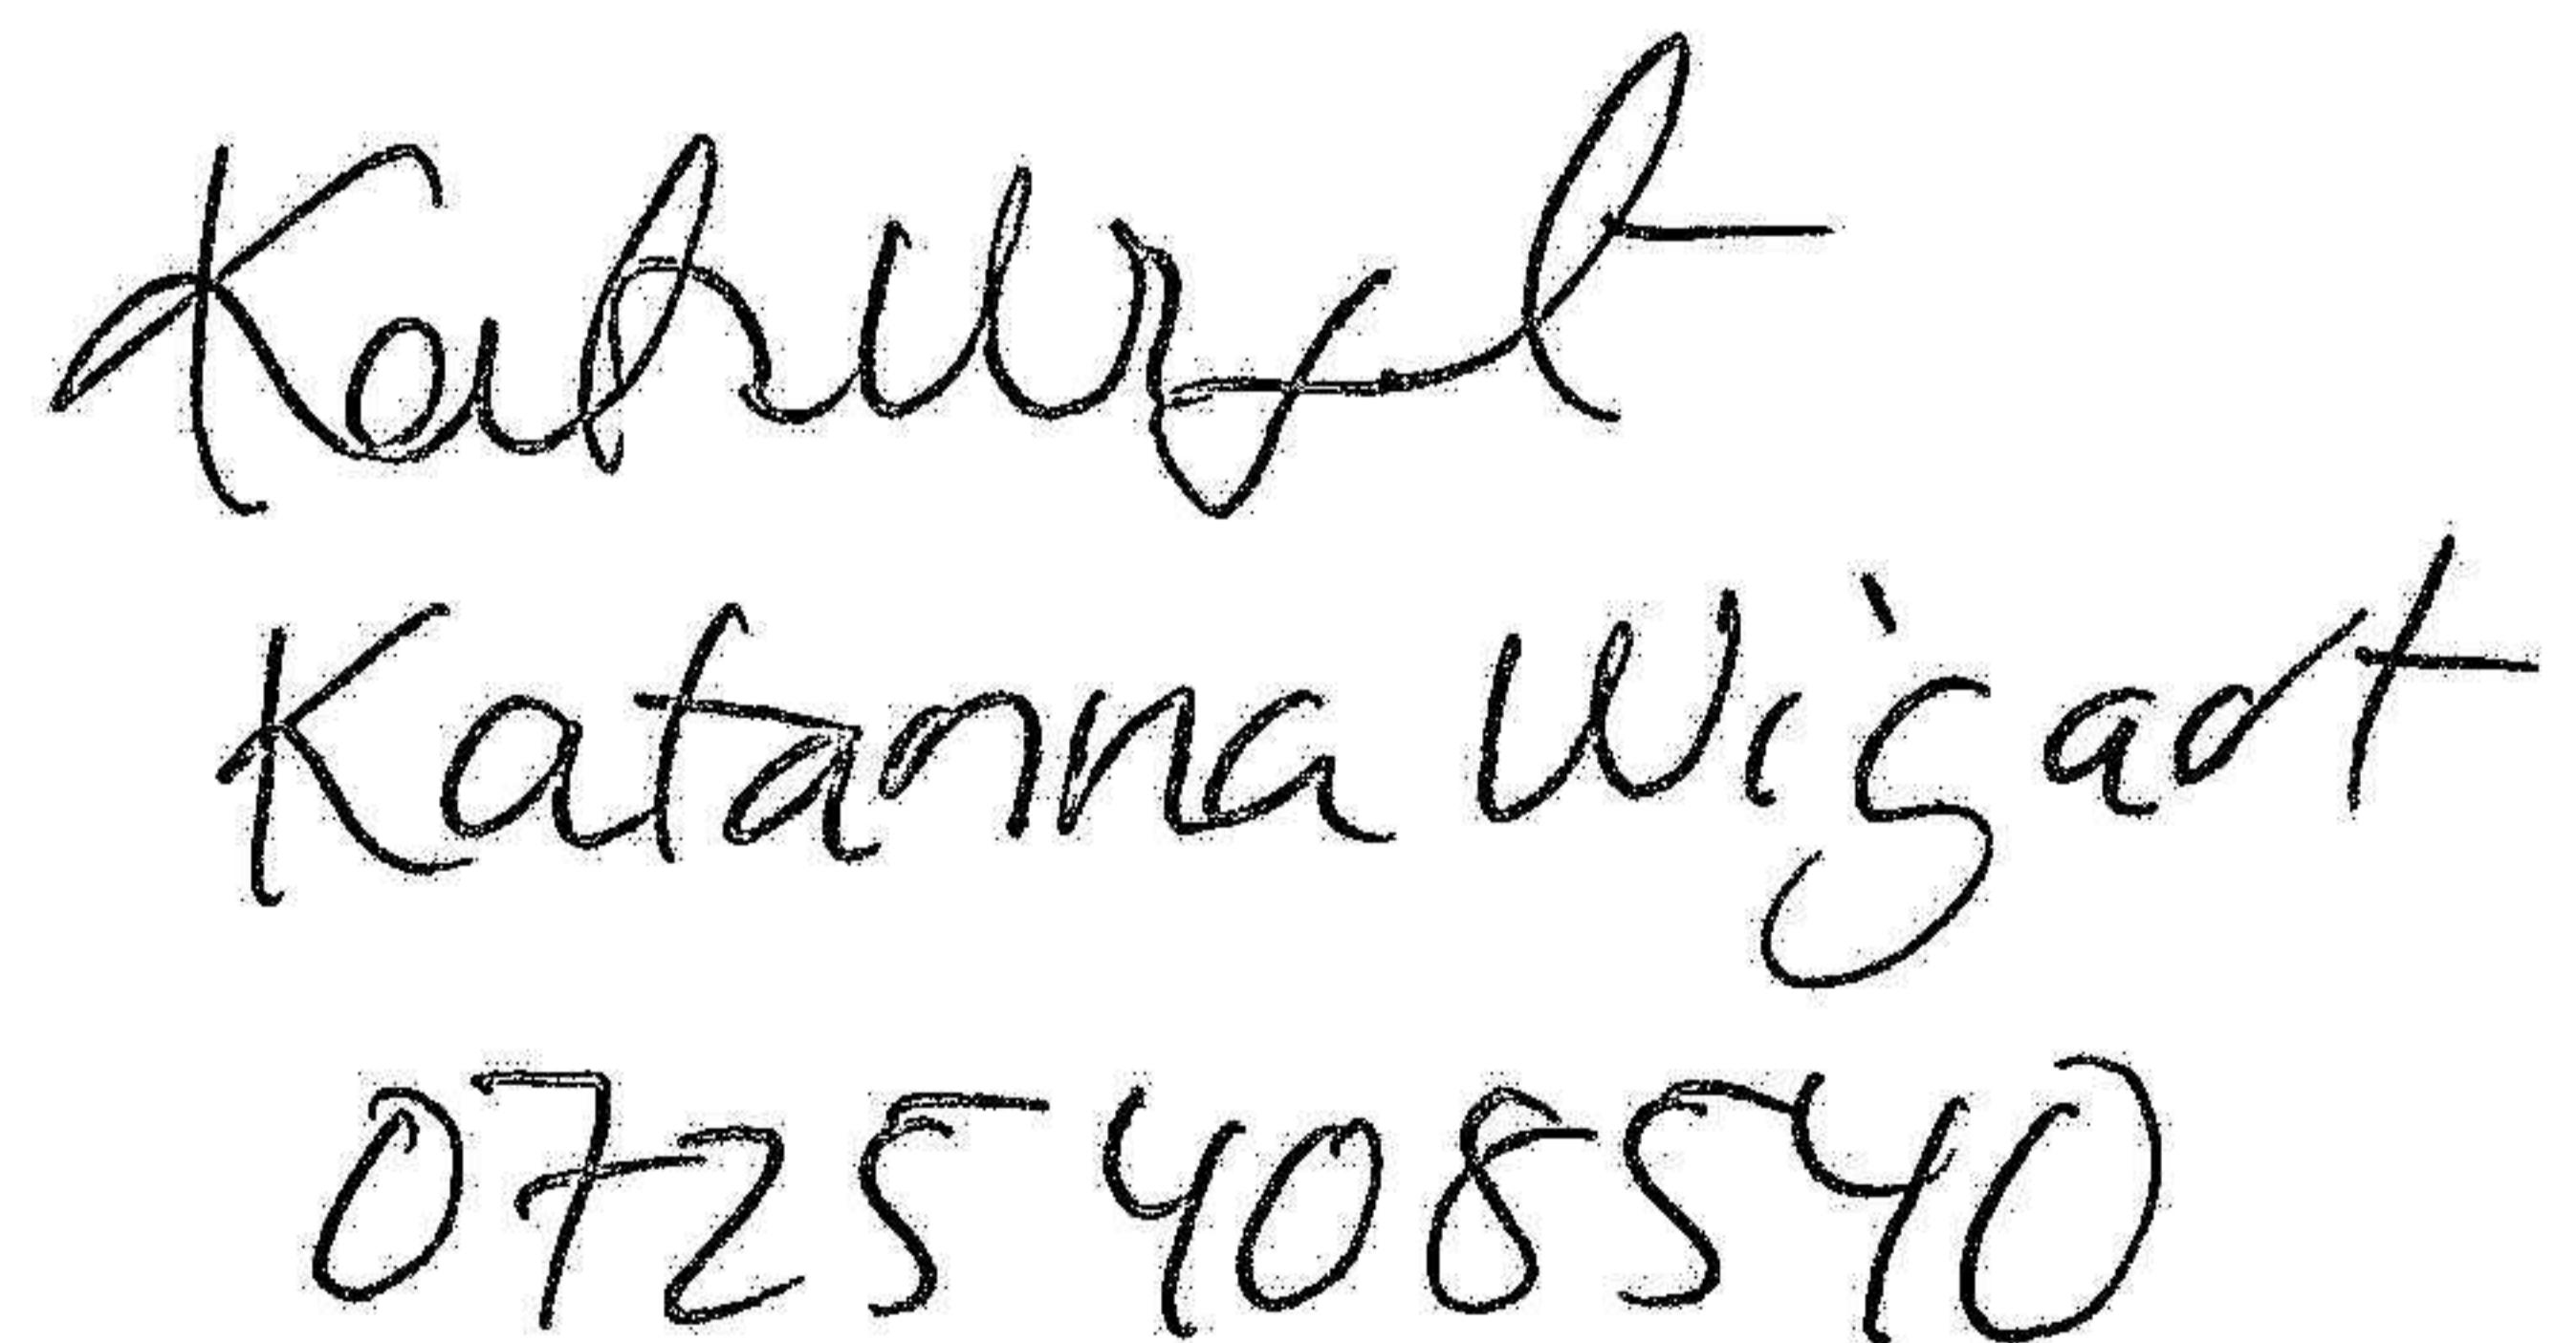 Katarina Wigart
0725 408540